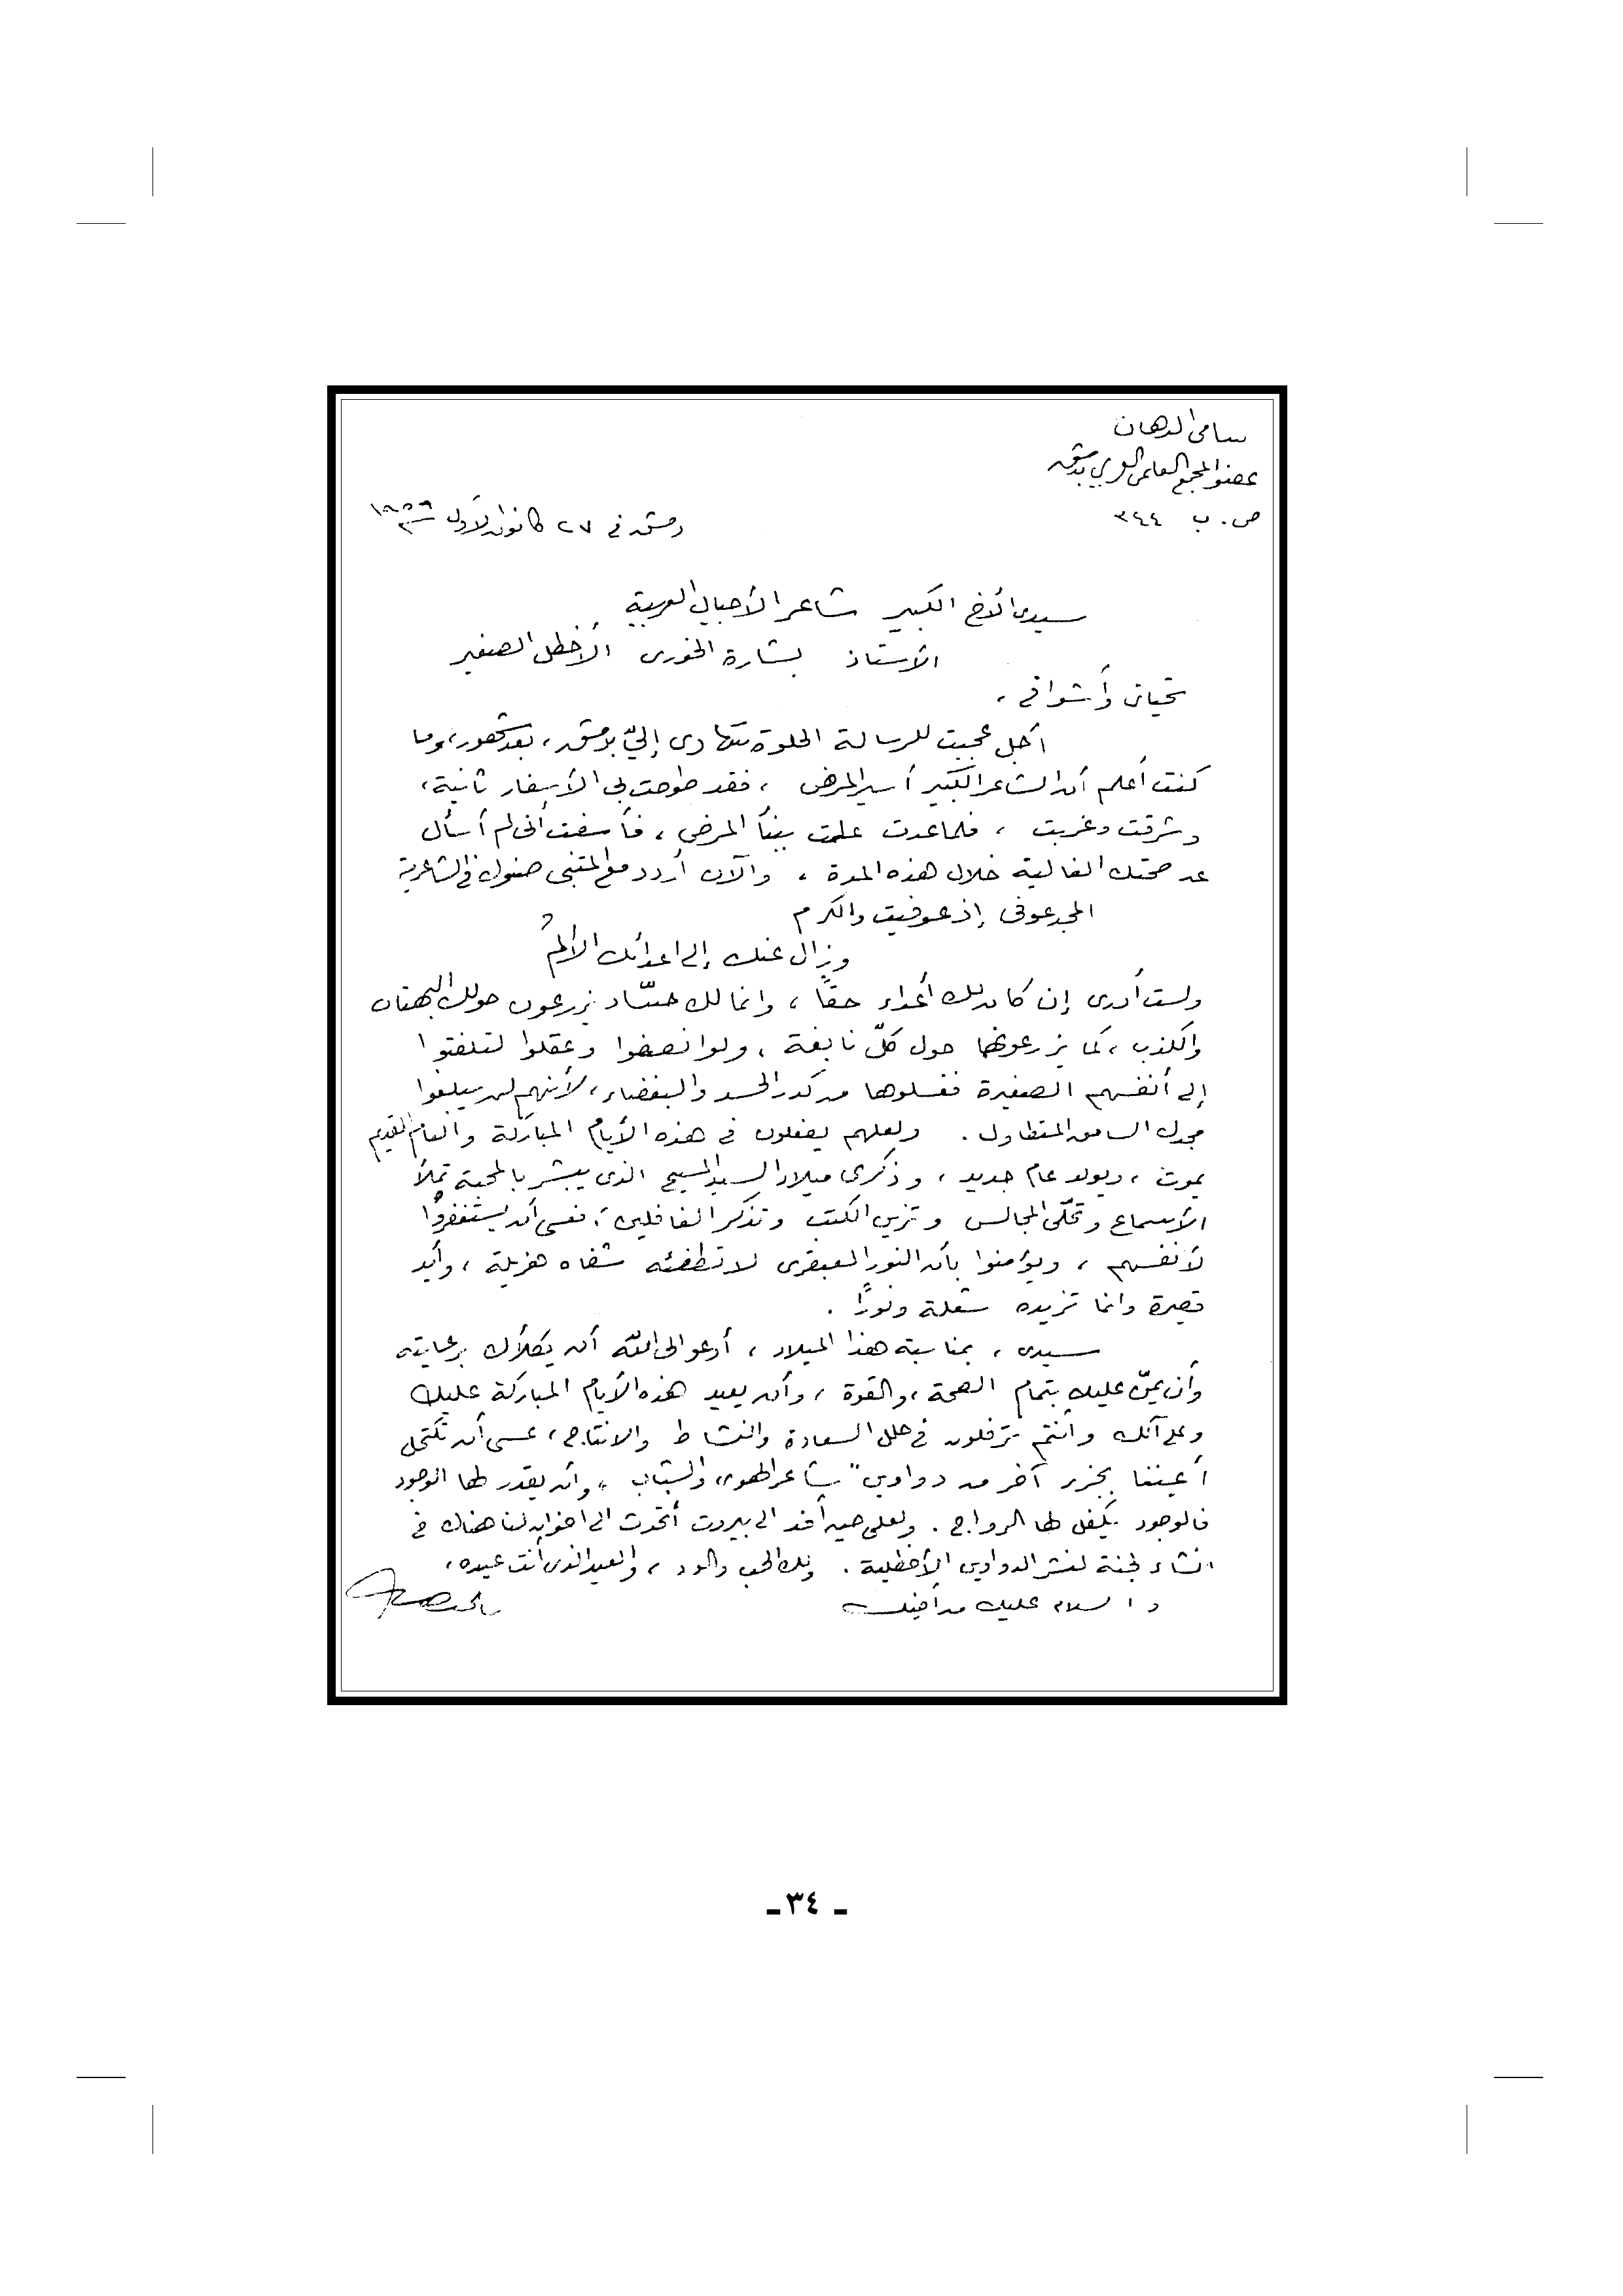 سامي الدهان
عضو المجمع العلمي العربي بدمشق
ص. ب ٣٤٤
دمشق في ٢٧ كانون الأول سنة ١٩٥٦
سيدي الأخ الكبير شاعر الأجيال العربية
الأستاذ بشارة الخوري الأخطل الصغير
تحياتي وأشواقي ،
أجل عجبت للرسالة الحلوة تتهادى إليّ بدمشق، بعد شهور، وما
كنت أعلم أن الشاعر الكبير أسير المرض ، فقد طوحت بي الأسفار ثانية،
وشرقت وغربت ، فلما عدت علمت بنبأ المرض ، فأسفت أني لم أسأل
عن صحتك الغالية خلال هذه المدة ، والآن أردد مع المتنبي صنوك في الشاعرية
المجد عوفي إذ عوفيت والكرم
وزال عنك إلى اعدائك الألمُ
ولست أدري إن كان لك أعداء حقاً ، وانما لك حسّاد يزرعون حولك البهتان
والكذب ، كما يزرعونهما حول كلّ نابغة ، ولو انصفوا وعقلوا لتلفتوا
إلى أنفسهم الصغيرة فغسلوها من كدر الحسد والبغضاء، لأنهم لن يبلغوا
مجدك السامق المتطاول . ولعلهم يفعلون في هذه الأيام المباركة والعام القديم
يموت ، ويولد عام جديد ، وذكرى ميلاد السيد المسيح الذي يبشر بالمحبة تملأ
الأسماع وتحلّي المجالس وتزين الكتب وتذكر الغافلين ، فعسى أن يستغفروا
لأنفسهم ، ويؤمنوا بأن النور العبقري لا تطفئه شفاه هزيلة ، وأيد
قصيرة وانما تزيده شعلة ونوراً .
سيدي ، بمناسبة هذا الميلاد ، أدعو الى الله أن يكلأك برعايته
وأن يمنّ عليك بتمام الصحة ، والقوة ، وأن يعيد هذه الأيام المباركة عليك
وعلى آلك وأنتم ترفلون في حلل السعادة والنشاط والانتاج ، عسى أن تكتحل
أعيننا بجزء آخر من دواوين "شاعر الهوى والشباب" وأن يقدر لها الوجود
فالوجود يكفل لها الرواج . ولعلي حين أفد الى بيروت أتحدث الى اخوان لنا هناك في
انشاء لجنة لنشر الدواوين الأخطلية . ولك الحب والود ، والعيد الذي أنت عيده ،
والسلام عليك من أخيك
ـ ٣٤ ـ